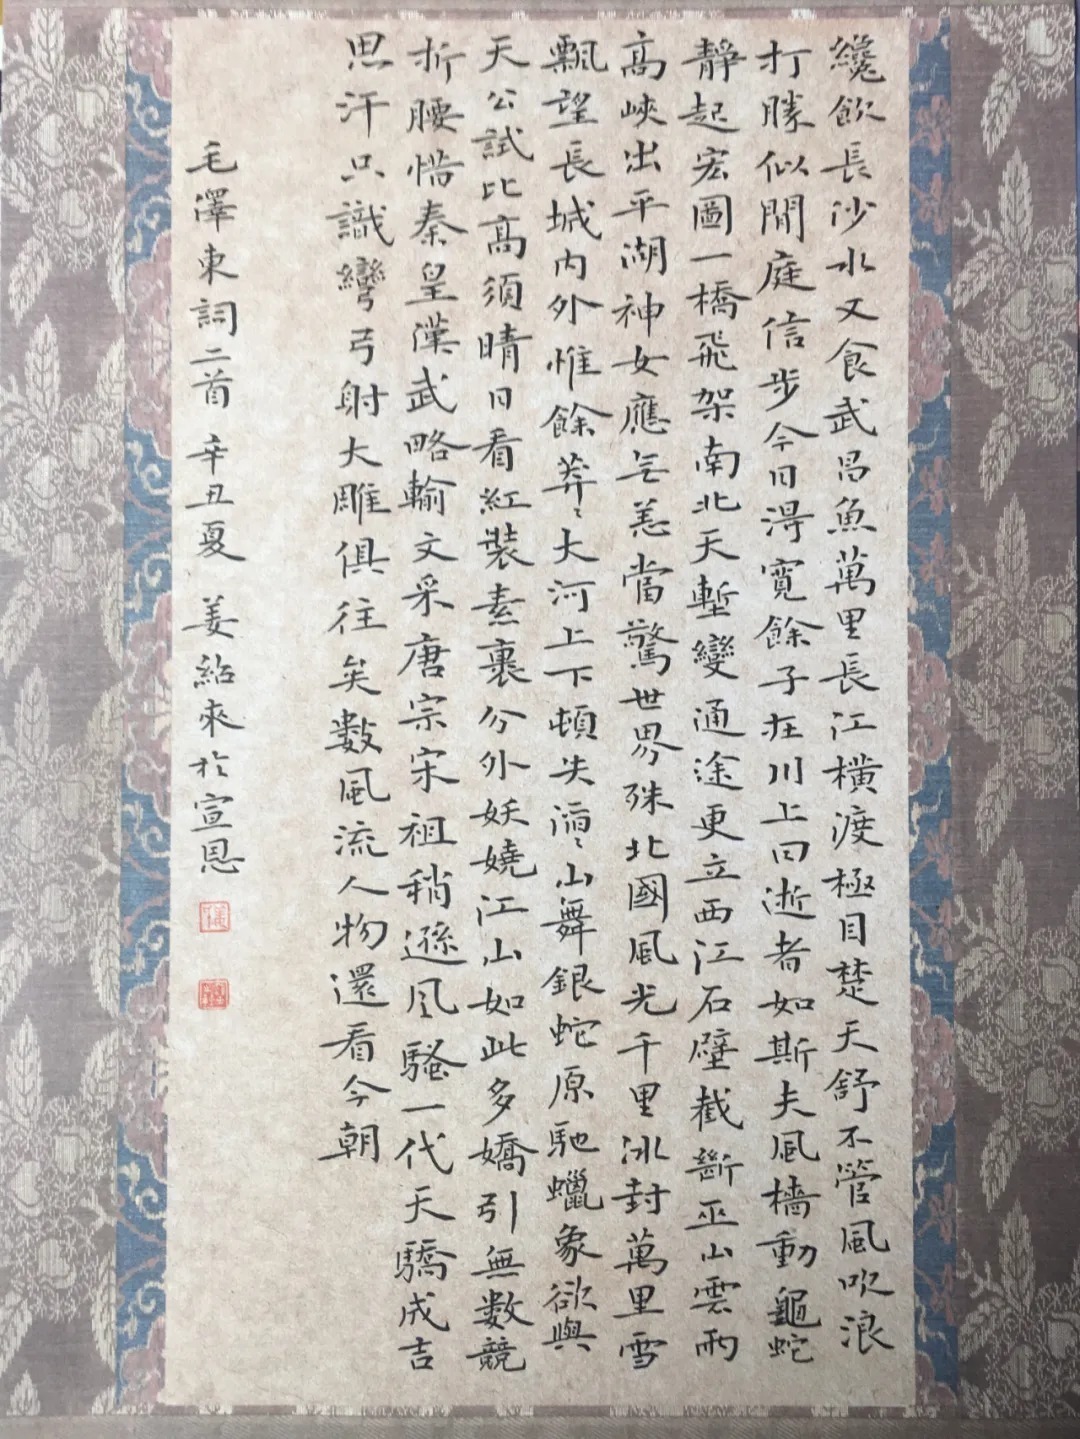 纔飲長沙水又食武昌魚萬里長江橫渡極目楚天舒不管風吹浪
打勝似閒庭信步今日得寬餘子在川上曰逝者如斯夫風檣動龜蛇
靜起宏圖一橋飛架南北天塹變通途更立西江石壁截斷巫山雲雨
高峽出平湖神女應无恙當驚世界殊北國風光千里冰封萬里雪
飄望長城内外惟餘莽〻大河上下頓失滔〻山舞銀蛇原馳蠟象欲與
天公試比高須晴日看紅裝素裹分外妖嬈江山如此多嬌引無數競
折腰惜秦皇漢武略輸文采唐宗宋祖稍遜風騷一代天驕成吉
思汗只識彎弓射大雕俱往矣數風流人物還看今朝
毛澤東詞二首 辛丑夏 姜紹來於宣恩